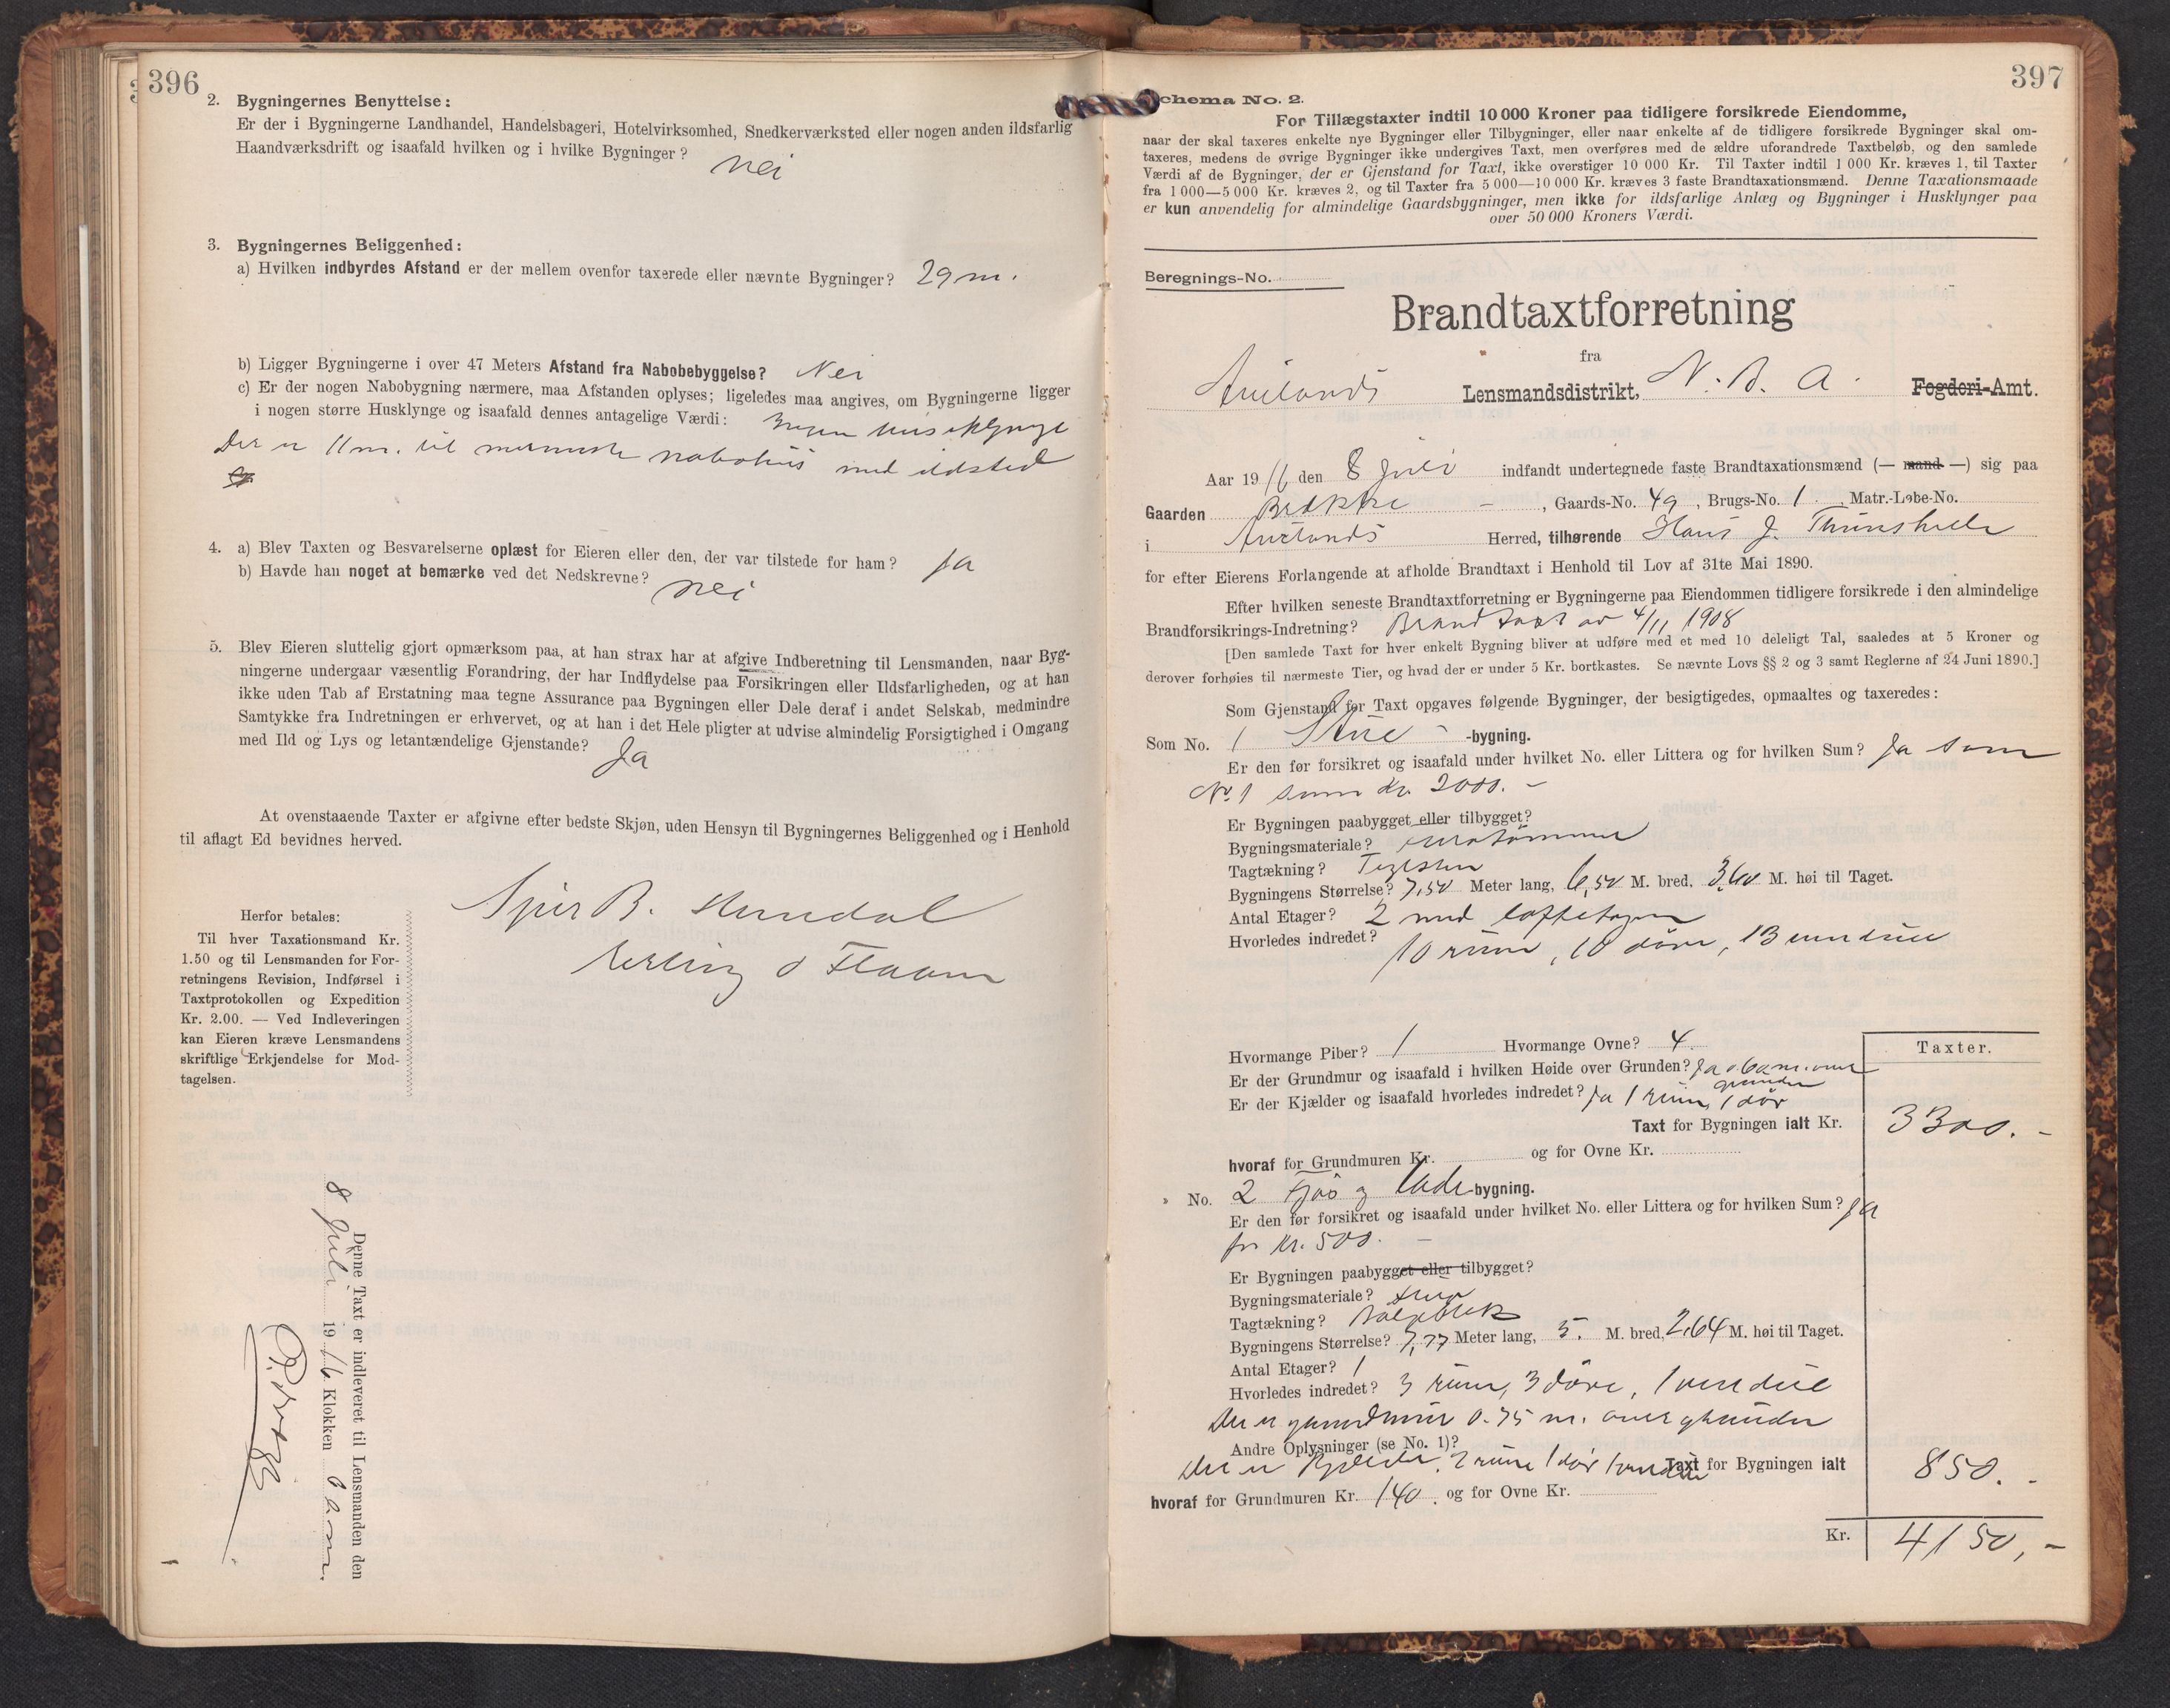 396
2. Bygningernes Benyttelse:
Er der i Bygningerne Landhandel, Handelsbageri, Hotelvirksomhed, Snedkerværksted eller nogen anden ildsfarlig
Haandværksdrift og isaafald hvilken og i hvilke Bygninger? Nei
3. Bygningernes Beliggenhed:
a) Hvilken indbyrdes Afstand er der mellem ovenfor taxerede eller nævnte Bygninger? 29 m.
b) Ligger Bygningerne i over 47 Meters Afstand fra Nabobebyggelse? Nei
c) Er der nogen Nabobygning nærmere, maa Afstanden oplyses; ligeledes maa angives, om Bygningerne ligger
i nogen større Husklynge og isaafald dennes antagelige Værdi: Ingen husklynge
Der er 11 m. til nærmeste nabohus med ildsted
4. a) Blev Taxten og Besvarelserne oplæst for Eieren eller den, der var tilstede for ham? Ja
b) Havde han noget at bemærke ved det Nedskrevne? Nei
5. Blev Eieren sluttelig gjort opmærksom paa, at han strax har at afgive Indberetning til Lensmanden, naar Byg-
ningerne undergaar væsentlig Forandring, der har Indflydelse paa Forsikringen eller Ildsfarligheden, og at han
ikke uden Tab af Erstatning maa tegne Assurance paa Bygningen eller Dele deraf i andet Selskab, medmindre
Samtykke fra Indretningen er erhvervet, og at han i det Hele pligter at udvise almindelig Forsigtighed i Omgang
med Ild og Lys og letantændelige Gjenstande? Ja
At ovenstaaende Taxter er afgivne efter bedste Skjøn, uden Hensyn til Bygningernes Beliggenhed og i Henhold
til aflagt Ed bevidnes herved.
B.
Erling O Flaam
Herfor betales:
Til hver Taxationsmand Kr.
1.50 og til Lensmanden for For-
retningens Revision, Indførsel i
Taxtprotokollen og Expedition
Kr. 2.00. — Ved Indleveringen
kan Eieren kræve Lensmandens
skriftlige Erkjendelse for Mod-
tagelsen.
Denne Taxt er indleveret til Lensmanden den
8 Juli 1916 Klokken
397
chema No. 2.
For Tillægstaxter indtil 10 000 Kroner paa tidligere forsikrede Eiendomme,
naar der skal taxeres enkelte nye Bygninger eller Tilbygninger, eller naar enkelte af de tidligere forsikrede Bygninger skal om-
taxeres, medens de øvrige Bygninger ikke undergives Taxt, men overføres med de ældre uforandrede Taxtbeløb, og den samlede
Værdi af de Bygninger, der er Gjenstand for Taxt, ikke overstiger 10 000 Kr. Til Taxter indtil 1 000 Kr. kræves 1, til Taxter
fra 1 000—5 000 Kr. kræves 2, og til Taxter fra 5 000—10 000 Kr. kræves 3 faste Brandtaxationsmænd. Denne Taxationsmaade
er kun anvendelig for almindelige Gaardsbygninger, men ikke for ildsfarlige Anlæg og Bygninger i Husklynger paa
over 50 000 Kroners Værdi.
Beregnings-No.
Brandtaxtforretning
fra
Aurlands Lensmandsdistrikt, N. B. A. Fogderi-Amt.
Aar 1916 den 8 Juli indfandt undertegnede faste Brandtaxationsmænd (— mand —) sig paa
Gaarden Brække, Gaards-No. 49, Brugs-No. 1, Matr.-Løbe-No.
i Aurlands Herred, tilhørende Hans J. Thunshelle
for efter Eierens Forlangende at afholde Brandtaxt i Henhold til Lov af 31te Mai 1890.
Efter hvilken seneste Brandtaxtforretning er Bygningerne paa Eiendommen tidligere forsikrede i den almindelige
Brandforsikrings-Indretning? Brandtaxt av 4/11 1908
[Den samlede Taxt for hver enkelt Bygning bliver at udføre med et med 10 deleligt Tal, saaledes at 5 Kroner og
derover forhøies til nærmeste Tier, og hvad der er under 5 Kr. bortkastes. Se nævnte Lovs §§ 2 og 3 samt Reglerne af 24 Juni 1890.]
Som Gjenstand for Taxt opgaves følgende Bygninger, der besigtigedes, opmaaltes og taxeredes:
Som No. 1 Stue-bygning.
Er den før forsikret og isaafald under hvilket No. eller Littera og for hvilken Sum? Ja som
No. 1 sum Kr. 2000.-
Er Bygningen paabygget eller tilbygget?
Bygningsmateriale? furutømmer
Tagtækning? Teglsten
Bygningens Størrelse? 7,50 Meter lang, 6,50 M. bred, 3,60 M. høi til Taget.
Antal Etager? 2 med loftetagen
Hvorledes indredet? 10 rum, 10 døre, 13 vinduer
Hvormange Piber? 1 Hvormange Ovne? 4
Er der Grundmur og isaafald i hvilken Høide over Grunden? Ja 0.60 m. over grunden
Er der Kjælder og isaafald hvorledes indredet? Ja 1 rum, 1 dør
Taxter.
Taxt for Bygningen ialt Kr. 3300.-
hvoraf for Grundmuren Kr. og for Ovne Kr.
" No. 2 Fjøs og lade-bygning.
Er den før forsikret og isaafald under hvilket No. eller Littera og for hvilken Sum? Ja
for Kr. 500.-
Er Bygningen paabygget eller tilbygget?
Bygningsmateriale? furu
Tagtækning? Bølgeblik
Bygningens Størrelse? 7,77 Meter lang, 5. M. bred, 2,64 M. høi til Taget.
Antal Etager? 1
Hvorledes indredet? 3 rum, 3 døre, 1 vindue
Der er grundmur 0.75 m. over grunden
Andre Oplysninger (se No. 1)?
Der er Kjelder, 2 rum 1 dør 1 vindue Taxt for Bygningen ialt 850.-
hvoraf for Grundmuren Kr. 140. og for Ovne Kr.
Kr. 4150,-